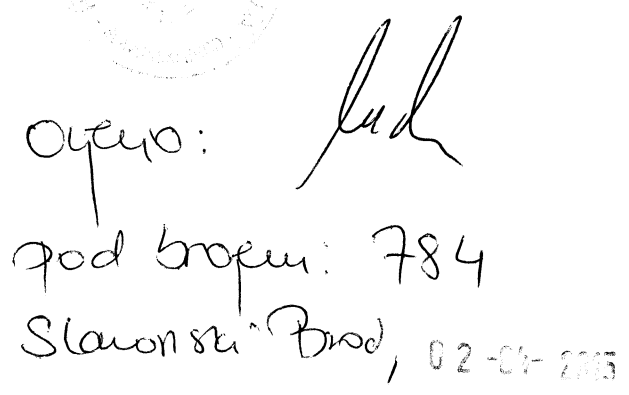 Ovjera:
pod brojem: 784
Slavonski Brod, 02-04-2015